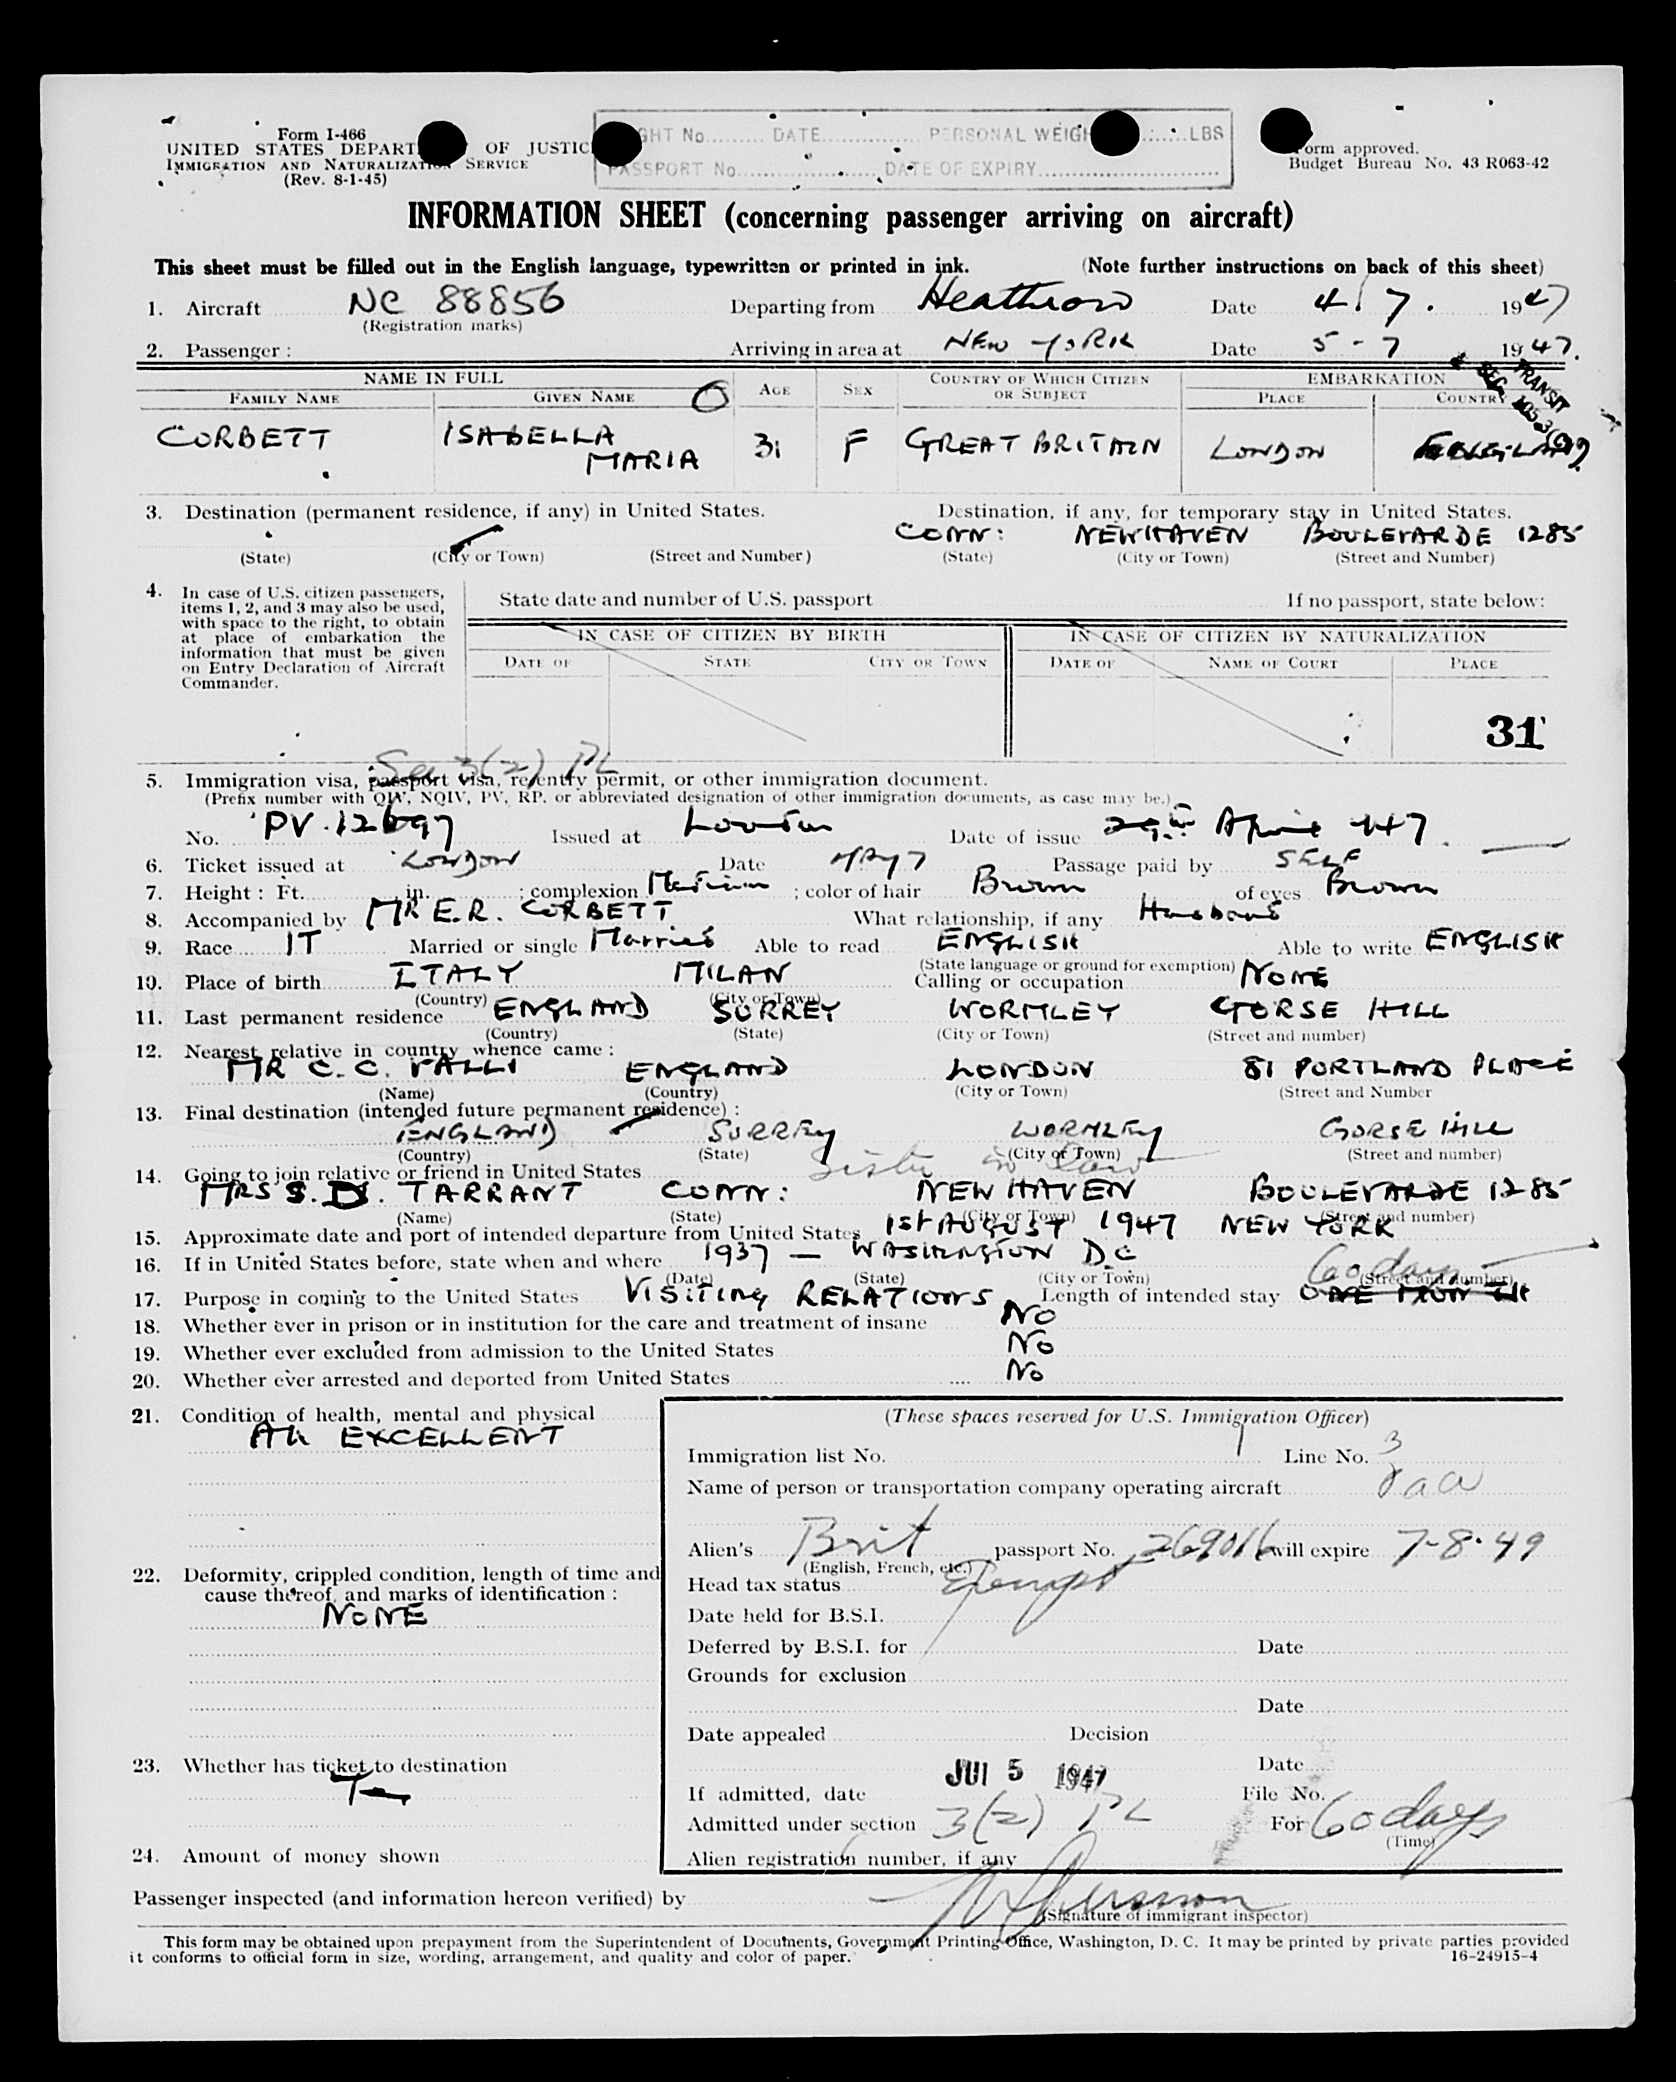 Form I-466
UNITED STATES DEPART OF JUSTIC
IMMIGRATION AND NATURALIZATION SERVICE
(Rev. 8-1-45)
GHT No. DATE PERSONAL WEIGH LBS
PASSPORT No. DATE OF EXPIRY
Form approved.
Budget Bureau No. 43 R063-42
INFORMATION SHEET (concerning passenger arriving on aircraft)
This sheet must be filled out in the English language, typewritten or printed in ink. (Note further instructions on back of this sheet)
1. Aircraft NC 88856 Departing from Heathrow Date 4/7. 1947
(Registration marks)
2. Passenger: Arriving in area at NEW YORK Date 5-7 1947.
NAME IN FULL AGE SEX COUNTRY OF WHICH CITIZEN OR SUBJECT EMBARKATION
FAMILY NAME GIVEN NAME PLACE COUNTRY
TRANSIT
SEC.
CORBETT ISABELLA MARIA 31 F GREAT BRITAIN LONDON ENGLAND
3. Destination (permanent residence, if any) in United States. Destination, if any, for temporary stay in United States.
CONN: NEWHAVEN BOULEVARDE 1285
(State) (City or Town) (Street and Number) (State) (City or Town) (Street and Number)
4. In case of U.S. citizen passengers, items 1, 2, and 3 may also be used, with space to the right, to obtain at place of embarkation the information that must be given on Entry Declaration of Aircraft Commander.
State date and number of U.S. passport If no passport, state below:
IN CASE OF CITIZEN BY BIRTH IN CASE OF CITIZEN BY NATURALIZATION
DATE OF STATE CITY OR TOWN DATE OF NAME OF COURT PLACE
31
Sec 3(2) PL
5. Immigration visa, passport visa, reentry permit, or other immigration document.
(Prefix number with QIV, NQIV, PV, RP, or abbreviated designation of other immigration documents, as case may be.)
No. PV. 12697 Issued at London Date of issue 29th April 47.
6. Ticket issued at LONDON Date MAY 7 Passage paid by SELF
7. Height: Ft. in. ; complexion Medium ; color of hair Brown of eyes Brown
8. Accompanied by MR E.R. CORBETT What relationship, if any Husband
9. Race IT Married or single Married Able to read ENGLISH Able to write ENGLISH
(State language or ground for exemption)
10. Place of birth ITALY MILAN Calling or occupation NONE
(Country) (City or Town)
11. Last permanent residence ENGLAND SURREY WORMLEY GORSE HILL
(Country) (State) (City or Town) (Street and number)
12. Nearest relative in country whence came:
MR C. C. VALLI ENGLAND LONDON 81 PORTLAND PLACE
(Name) (Country) (City or Town) (Street and Number
13. Final destination (intended future permanent residence):
ENGLAND SURREY WORMLEY GORSE HILL
(Country) (State) (City or Town) (Street and number)
14. Going to join relative or friend in United States Sister in law
MRS S. D. TARRANT CONN: NEW HAVEN BOULEVARDE 1285
(Name) (State) (City or Town) (Street and number)
15. Approximate date and port of intended departure from United States 1st AUGUST 1947 NEW YORK
16. If in United States before, state when and where 1937 — WASHINGTON D.C
(Date) (State) (City or Town) (Street and number)
60 days
17. Purpose in coming to the United States VISITING RELATIONS Length of intended stay ONE MONTH
18. Whether ever in prison or in institution for the care and treatment of insane NO
19. Whether ever excluded from admission to the United States NO
20. Whether ever arrested and deported from United States NO
21. Condition of health, mental and physical
EXCELLENT
22. Deformity, crippled condition, length of time and cause thereof, and marks of identification:
NONE
23. Whether has ticket to destination
24. Amount of money shown
(These spaces reserved for U.S. Immigration Officer)
Immigration list No. 1 Line No. 3
Name of person or transportation company operating aircraft
Alien's Brit passport No. 269016 will expire 7-8-49
(English, French, etc.)
Head tax status Exempt
Date held for B.S.I.
Deferred by B.S.I. for Date
Grounds for exclusion
Date
Date appealed Decision
Date
If admitted, date JUL 5 1947 File No.
Admitted under section 3(2) PL For 60 days
(Time)
Alien registration number, if any
Passenger inspected (and information hereon verified) by
(Signature of immigrant inspector)
This form may be obtained upon prepayment from the Superintendent of Documents, Government Printing Office, Washington, D. C. It may be printed by private parties provided
it conforms to official form in size, wording, arrangement, and quality and color of paper. 16-24915-4